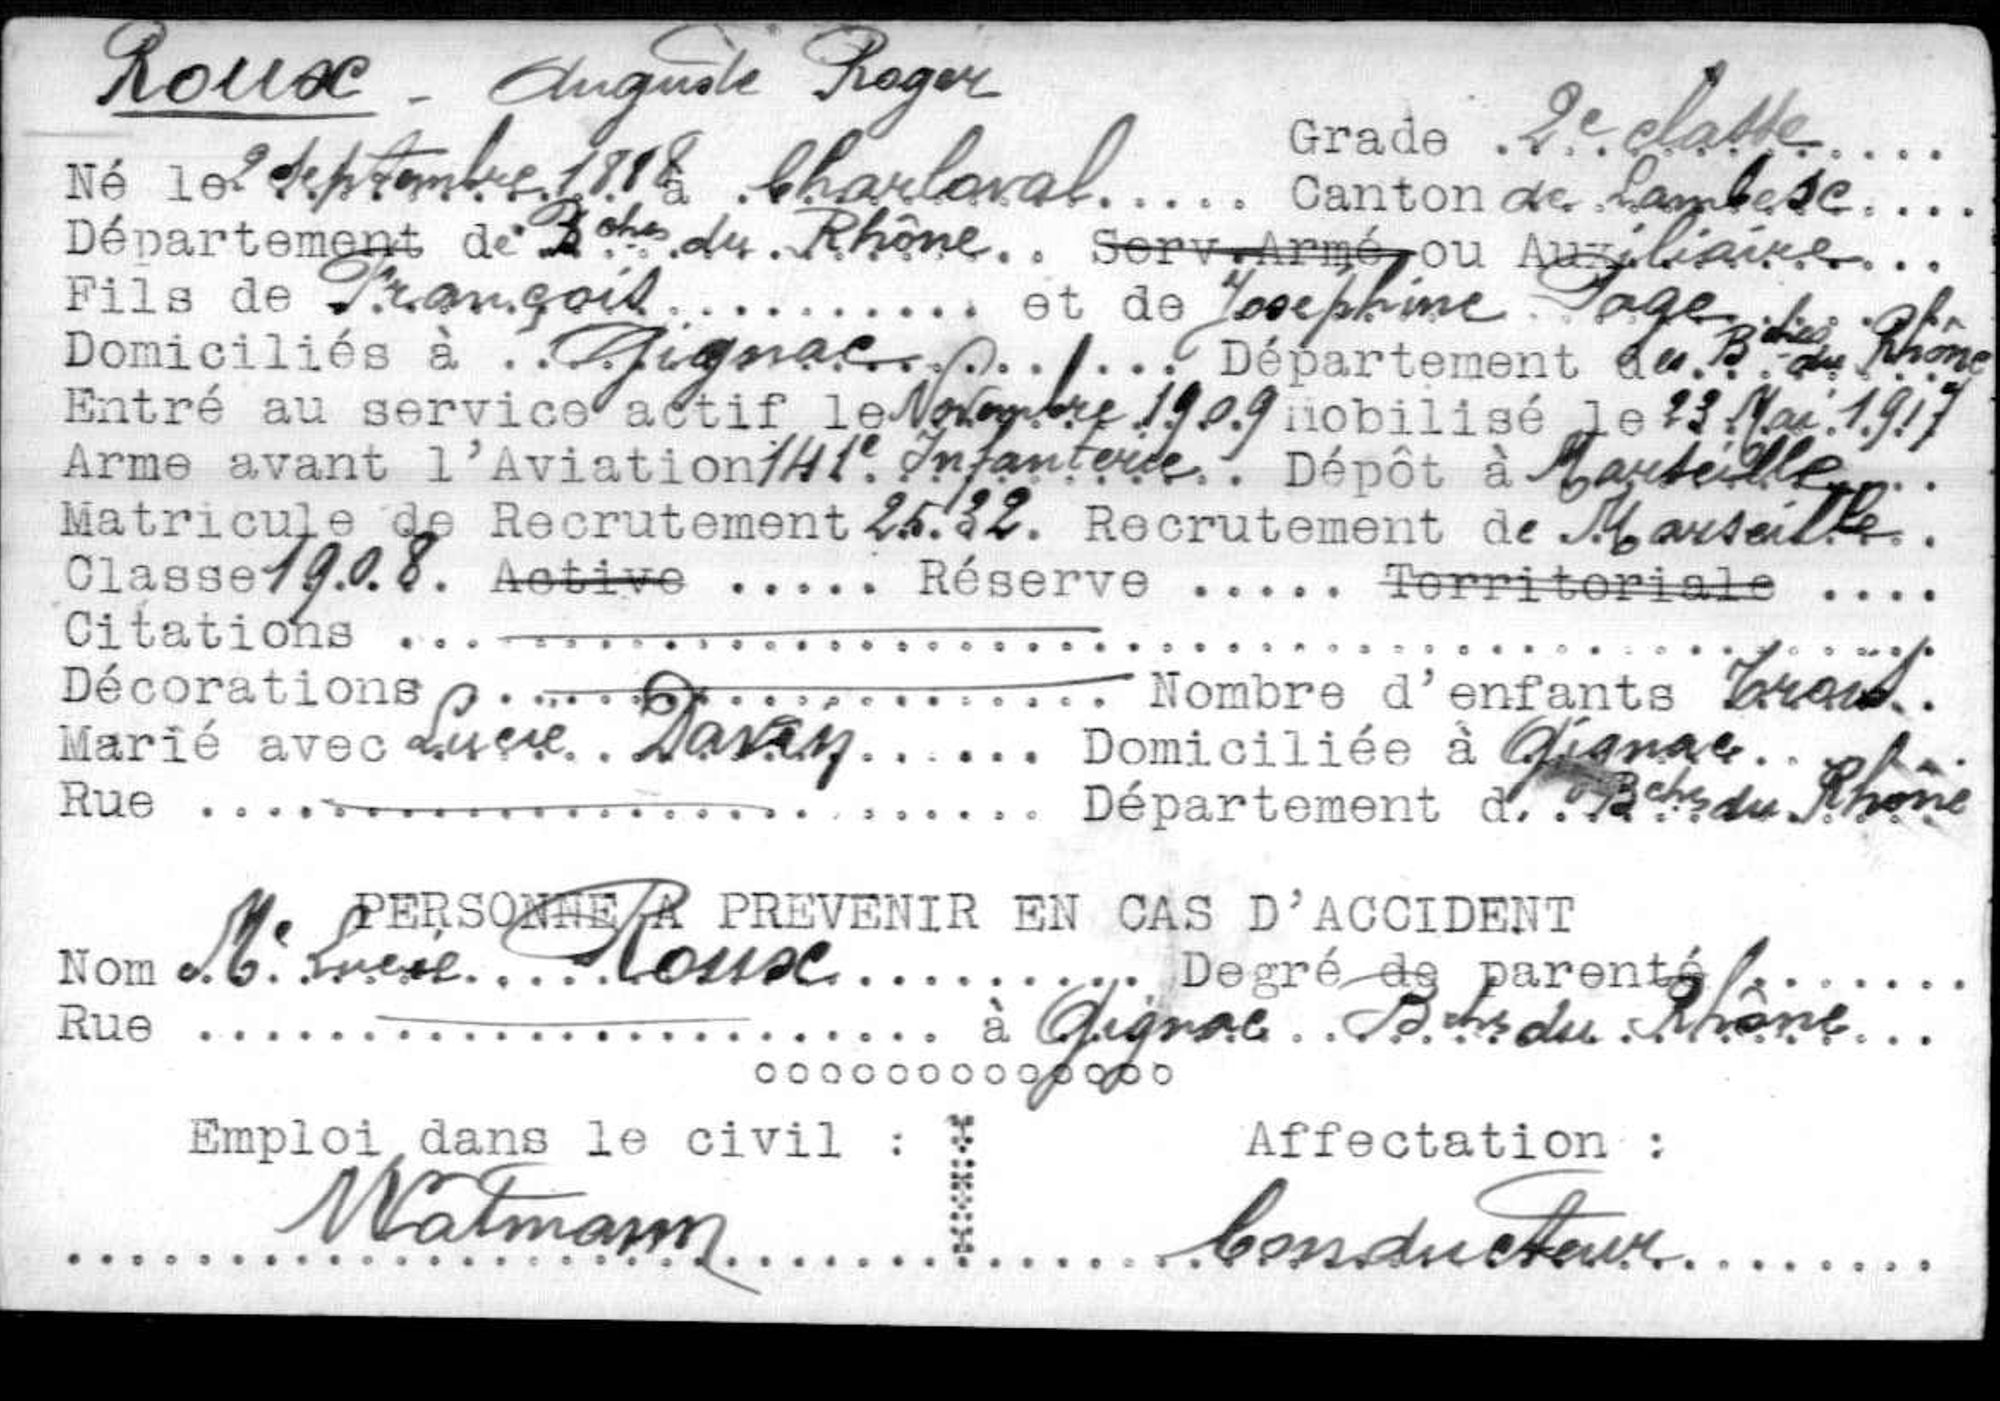 Roux - Auguste Roger
Grade 2e classe
Né le 2 Septembre 1888 à Charleval Canton de Lambesc
Département de Bches du Rhône Serv. Armé ou Auxiliaire
Fils de François et de Joséphine Page
Domiciliés à Gignac Département des Bches du Rhône
Entré au service actif le Novembre 1909 Mobilisé le 23 Mai 1917
Arme avant l'Aviation 141e Infanterie Dépôt à Marseille
Matricule de Recrutement 2532 Recrutement de Marseille
Classe 1908 Active ..... Réserve ..... Territoriale ....
Citations
Décorations Nombre d'enfants Trois
Marié avec Lucie Domiciliée à Gignac
Rue Département d. Bches du Rhône
PERSONNE A PREVENIR EN CAS D'ACCIDENT
Nom Me Lucie Roux Degré de parenté
Rue à Gignac Bches du Rhône
Emploi dans le civil : Affectation :
Watmann Conducteur